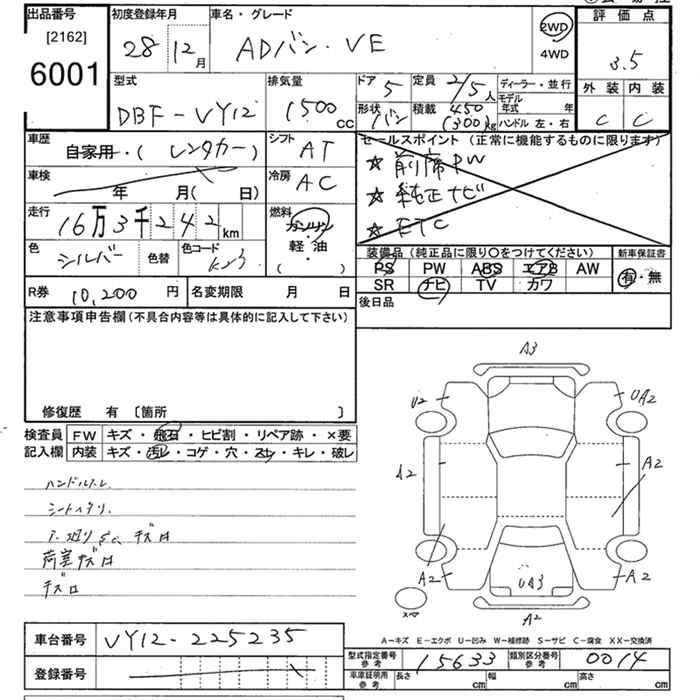 出品番号
[2162]
6001
初度登録年月
28 12月
車名・グレード
ADバン・VE
2WD
4WD
評価点
3.5
外装 内装
C C
型式
DBF-VY12
排気量
1500
CC
ドア 5
形状 バン
定員 2/5人
積載 450
(300)kg
ディーラー・並行
モデル年式 年
ハンドル 左・右
車歴
自家用・(レンタカー)
シフト
AT
車検
年 月( 日)
冷房
AC
セールスポイント(正常に機能するものに限ります)
★前席PW
★純正ナビ
★ETC
走行
16万3千242
km
燃料
ガソリン
・
軽・油
( )
色
シルバー
色替
色コード
K23
装備品(純正品に限り〇をつけてください)
PS PW ABS エアB AW
SR ナビ TV カワ
新車保証書
有・無
R券 10,200 円
名変期限 月 日
後日品
注意事項申告欄(不具合内容等は具体的に記入して下さい)
修復歴 有 〔箇所 〕
検査員
記入欄
FW キズ・飛石・ヒビ割・リペア跡・×要
内装 キズ・汚レ・コゲ・穴・スレ・キレ・破レ
ハンドルスレ
荷室キズロ
キズロ
A3
U2
UA2
A2
A2
A2
UA3
A2
A2
A-キズ E-エクボ U-凹み W-補修跡 S-サビ C-腐食 XX-交換済
車台番号
VY12-225235
登録番号
型式指定番号
参考
15633
類別区分番号
参考
0014
車庫証明用
参考
長さ cm
幅 cm
高さ cm